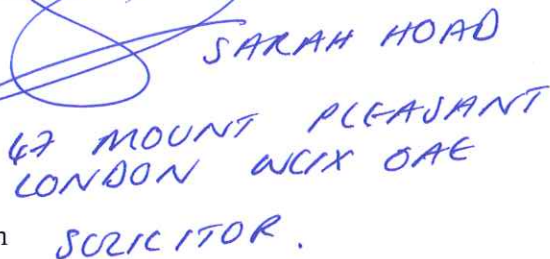 SARAH HOAD
47 MOUNT PLEASANT
LONDON WC1X 0AE
SOLICITOR.